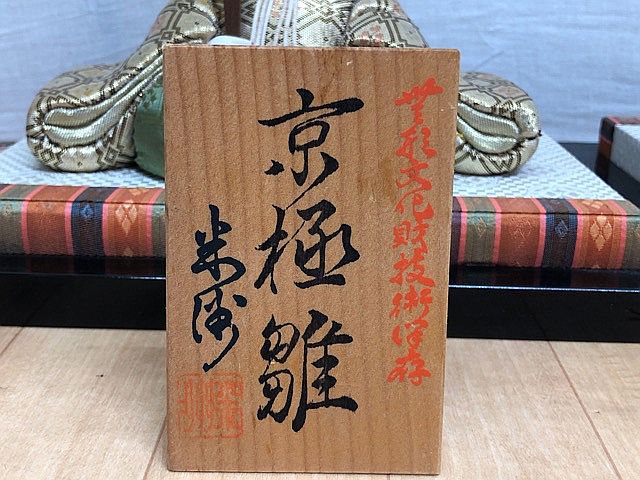 無形文化財技術保存
京極雛
米洲